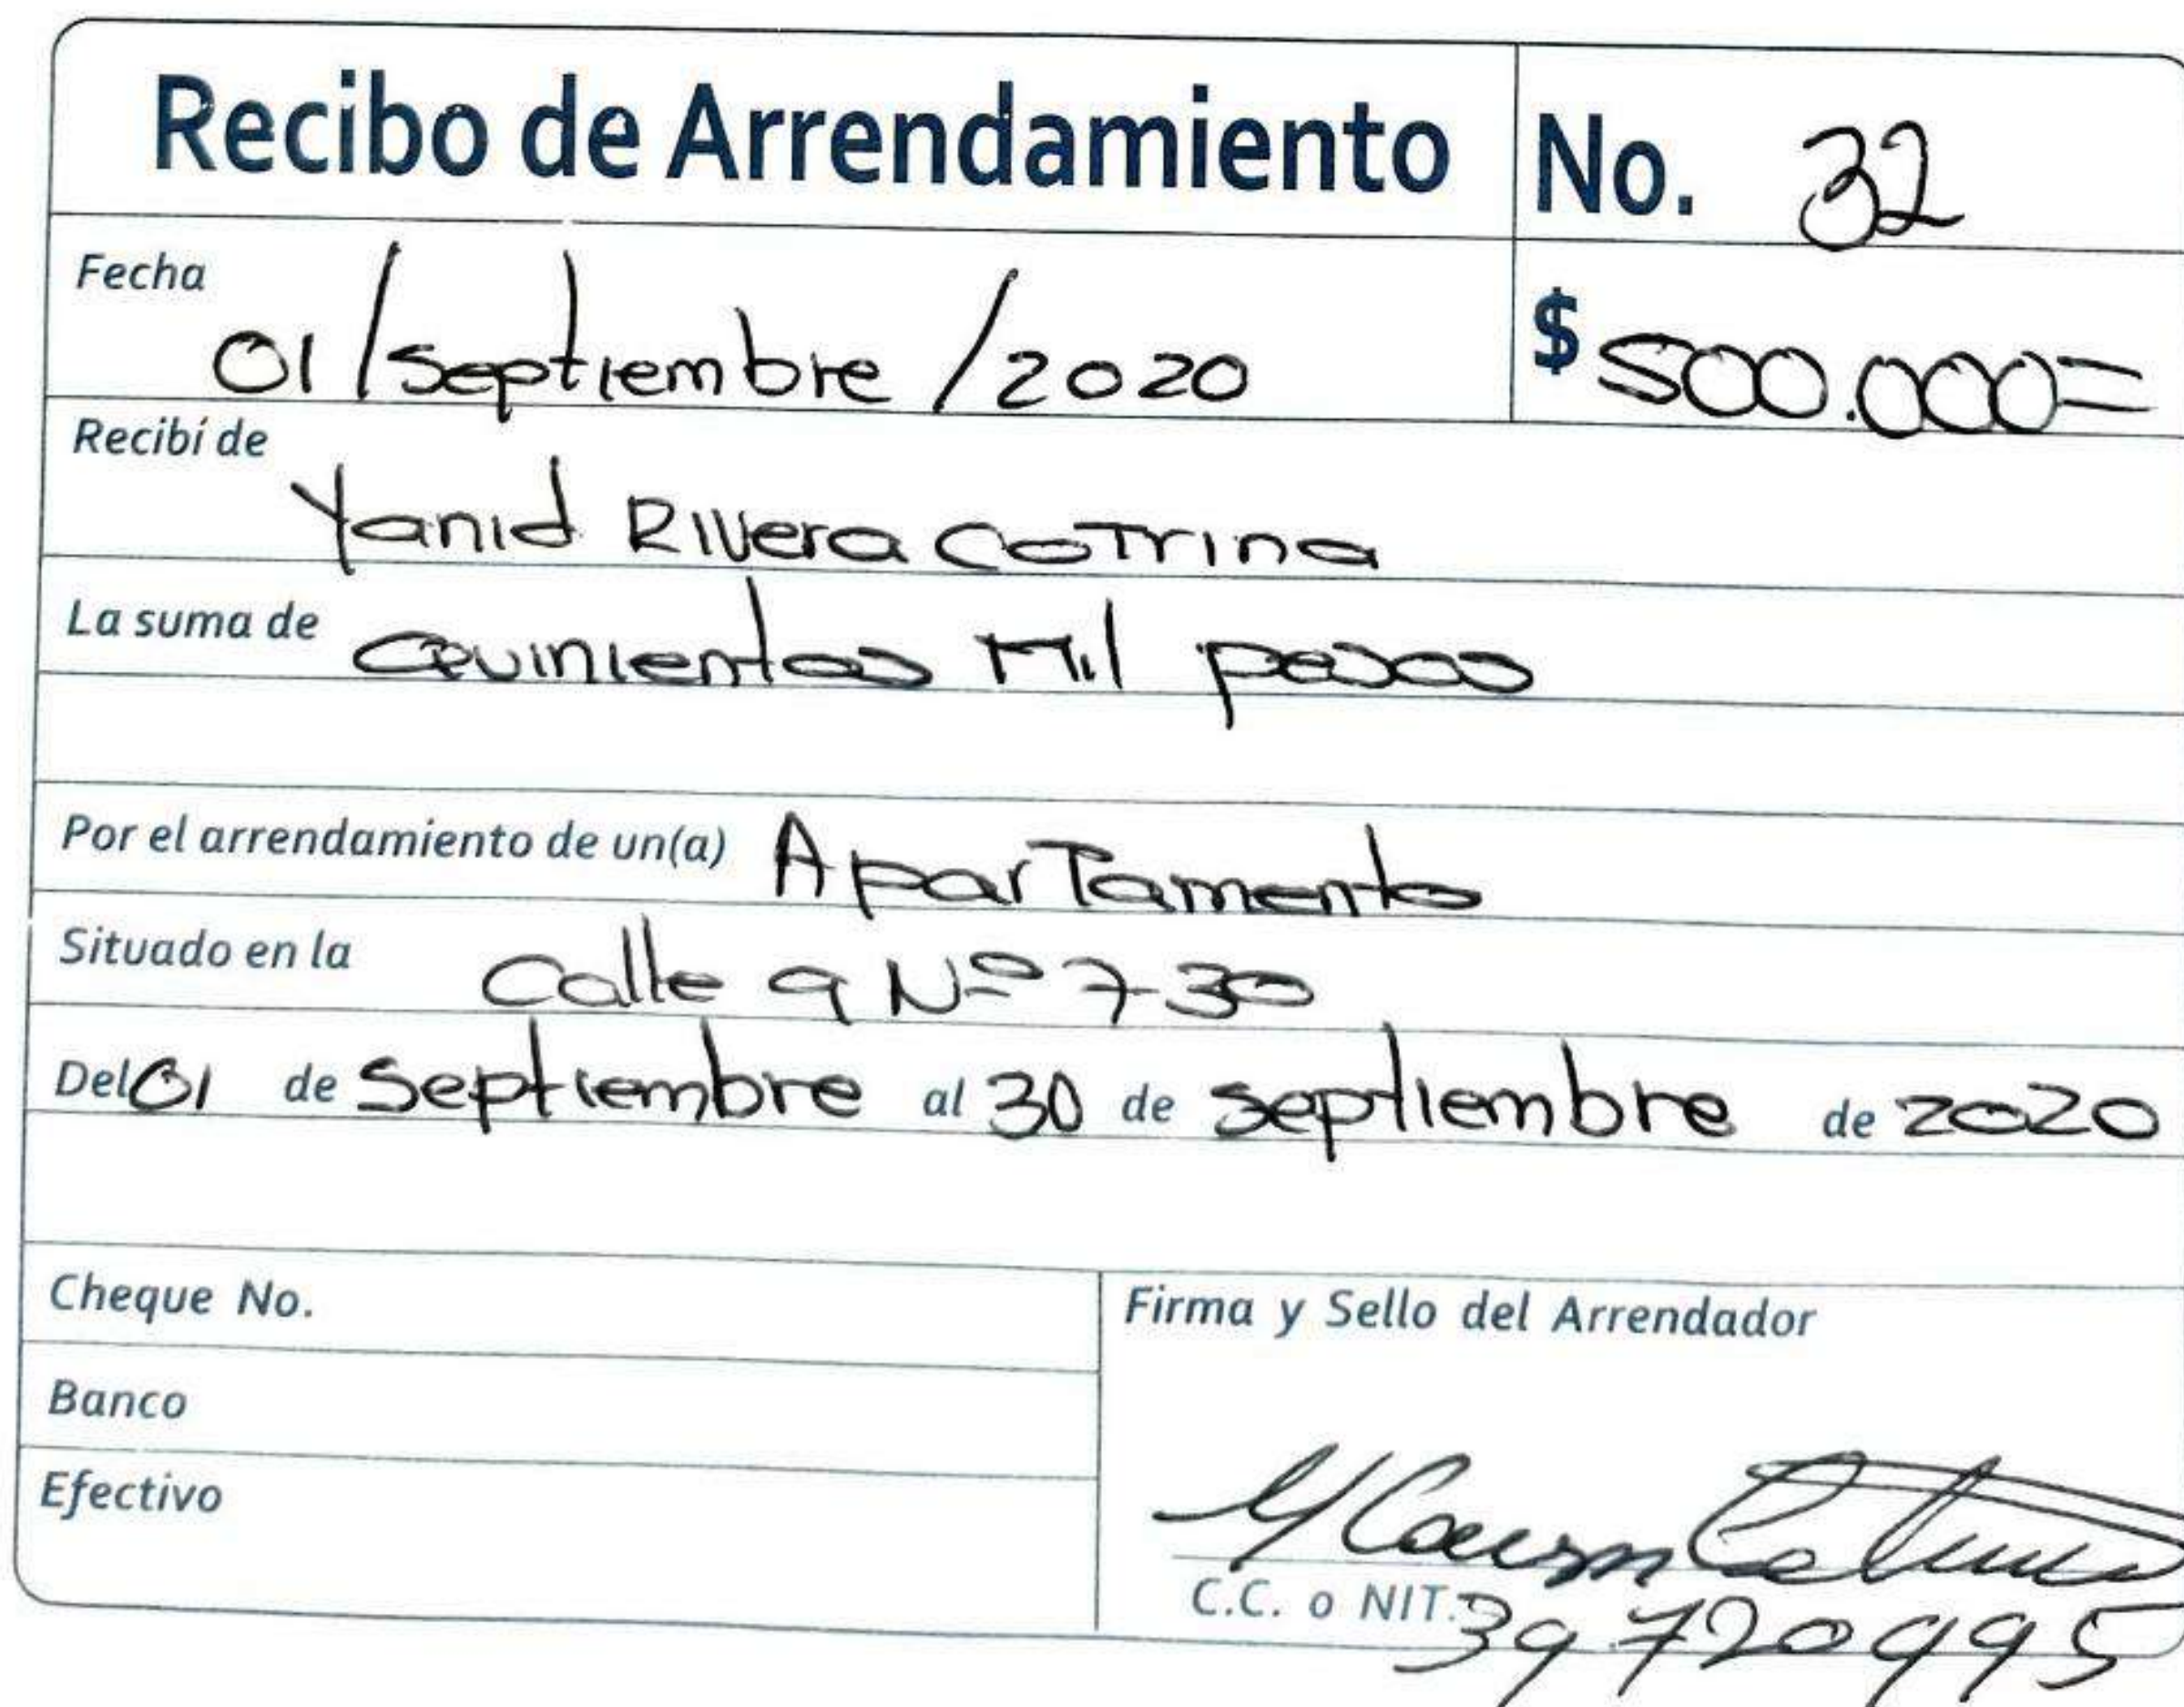 Recibo de Arrendamiento No. 32
Fecha 01/septiembre/2020 $ 500.000=
Recibí de Yanid Rivera Cotrina
La suma de Quinientos Mil pesos
Por el arrendamiento de un(a) Apartamento
Situado en la Calle 9 Nº 7-30
Del 01 de Septiembre al 30 de septiembre de 2020
Cheque No.
Firma y Sello del Arrendador
Banco
Efectivo
C.C. o NIT. 39720995